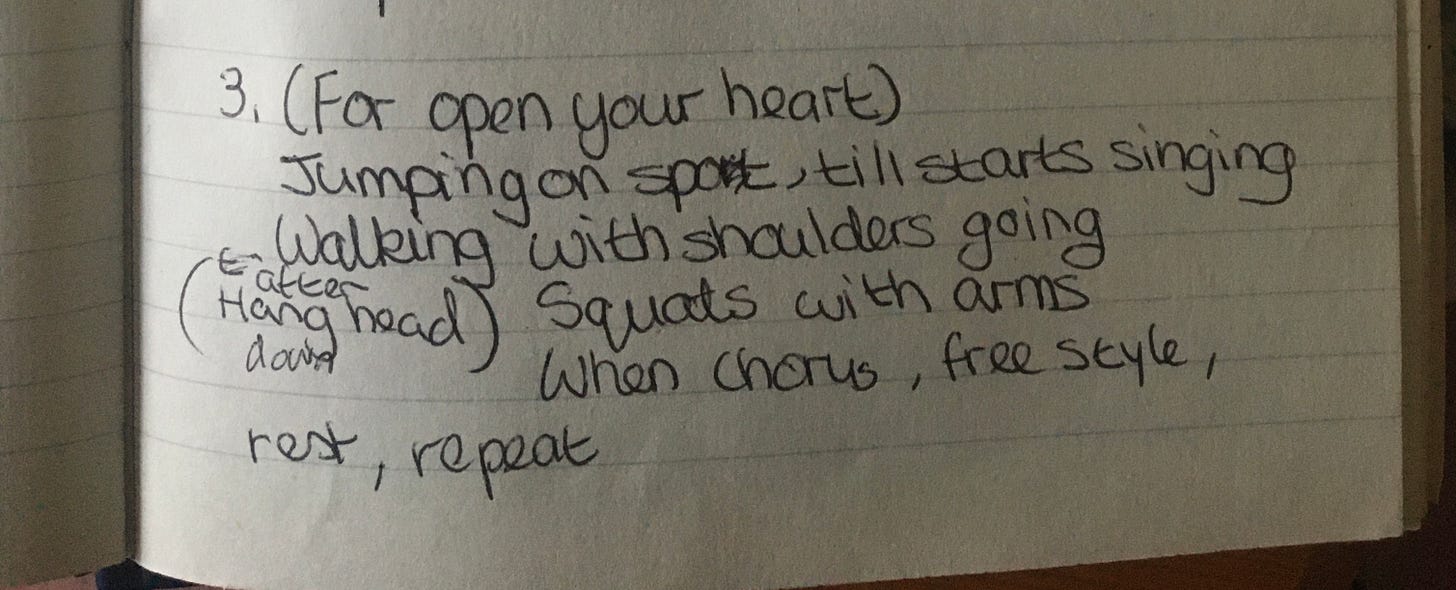 3. (For open your heart)
Jumping on spot, till starts singing
Walking with shoulders going
(← after
Hang head) Squats with arms
down
When chorus, free style,
rest, repeat